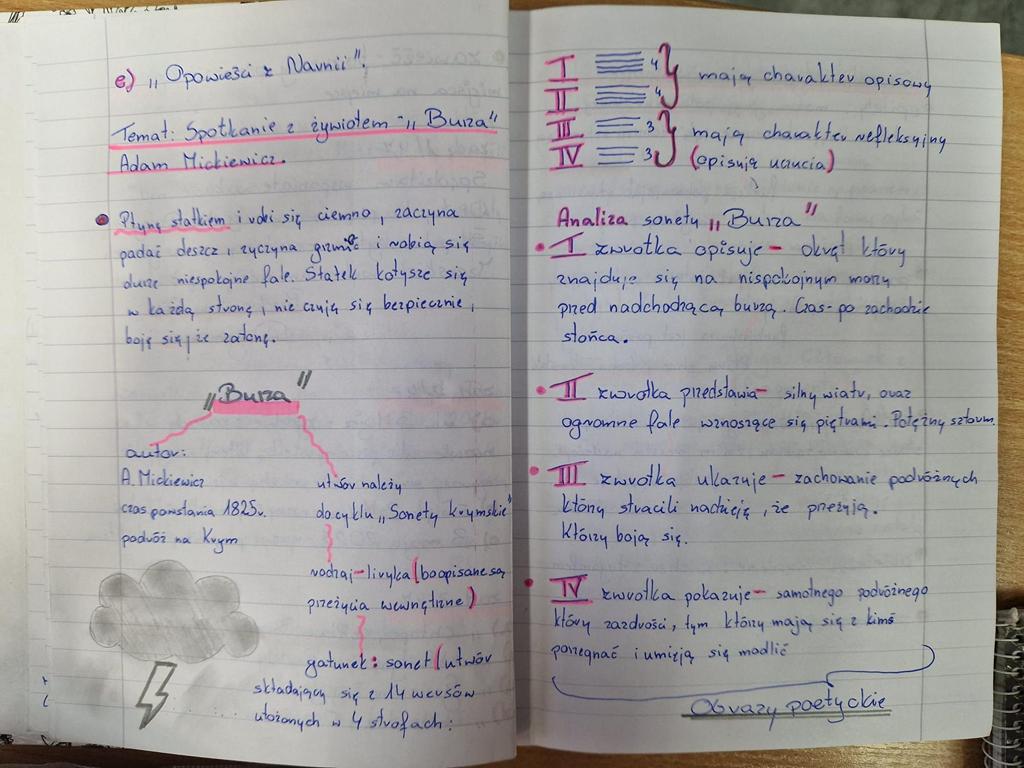 e) „Opowieści z Narnii".
Temat: Spotkanie z żywiołem - „Burza"
Adam Mickiewicz.
Płynę statkiem i robi się ciemno, zaczyna
padać deszcz, zyczyna grzmieć i robią się
duże niespokojne fale. Statek kołysze się
w każdą stronę, nie czuję się bezpiecznie,
boję się, że zatonę.
„Burza"
autor:
A. Mickiewicz
czas powstania 1825r.
podróż na Krym
utwór należy
do cyklu „Sonety krymskie"
rodzaj - liryka (bo opisane są
przeżycia wewnętrzne)
gatunek: sonet (utwór
składający się z 14 wersów
ułożonych w 4 strofach:
I 4
II 4
mają charakter opisowy
III 3
IV 3
mają charakter refleksyjny
(opisują uczucia)
Analiza sonetu „Burza"
I zwrotka opisuje - okręt który
znajduje się na nispokojnym morzu
przed nadchodzącą burzą. Czas - po zachodzie
słońca.
II zwrotka przedstawia - silny wiatr, oraz
ogromne fale wznoszące się piętrami. Potężny szturm.
III zwrotka ukazuje - zachowanie podróżnych
którzy stracili nadzieję, że przeżyją.
Którzy boją się.
IV zwrotka pokazuje - samotnego podróżnego
który zazdrości, tym którzy mają się z kimś
porzegnać i umieją się modlić
Obrazy poetyckie